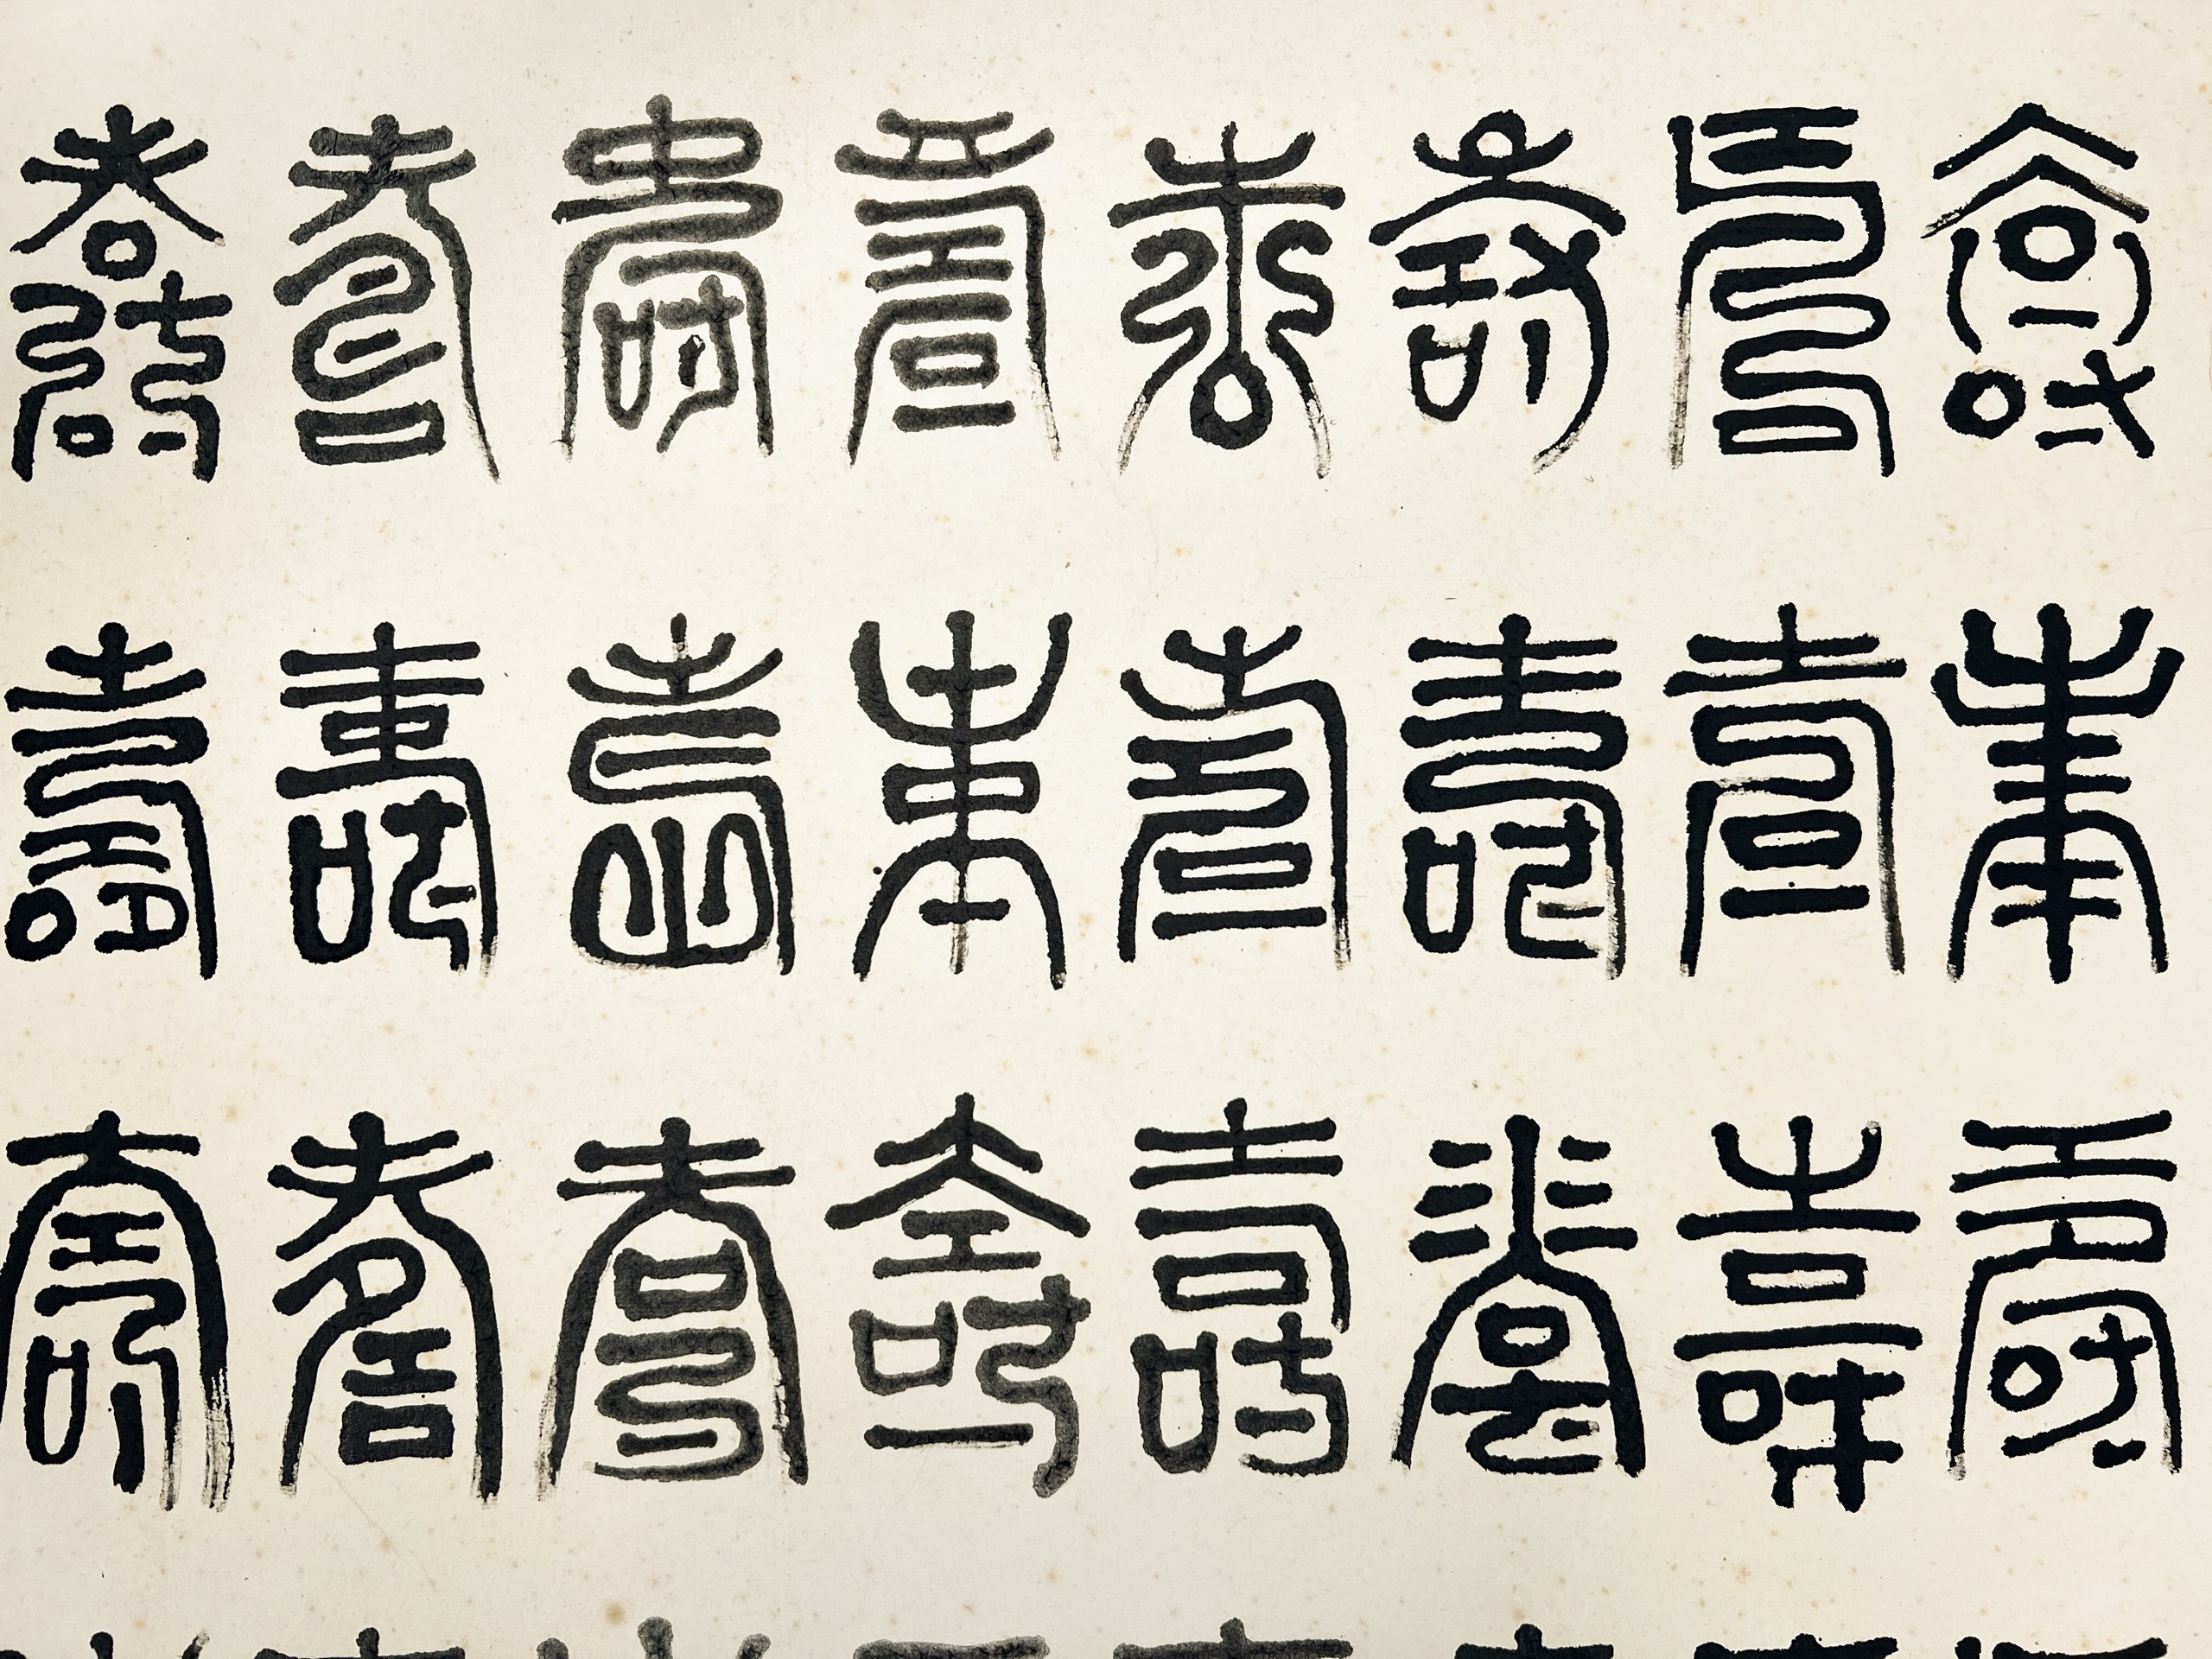 壽壽壽壽壽壽壽壽
壽壽壽壽壽壽壽壽
壽壽壽壽壽壽壽壽